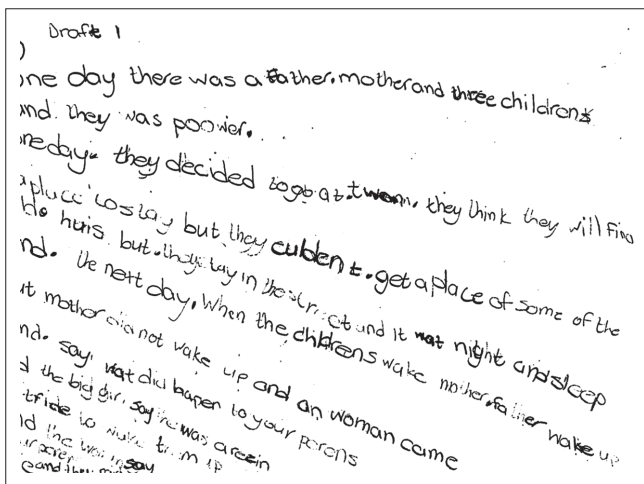 Draft 1
)
one day there was a father. mother and three childrens
and. they was poowier.
oneday. they decided to go at. twonn. they think they will find
a plucc to stay but they culdent. get a place of some of the
huis. but. they lay in the street and it wat night and sleep
nd. the nett day, When the childrens wake mother. father wake up
it mother did not wake up and an woman came
nd. say, wat did bapen to your perens
the big girl say he was areein
tride to wake them up
nd the woman say
and they